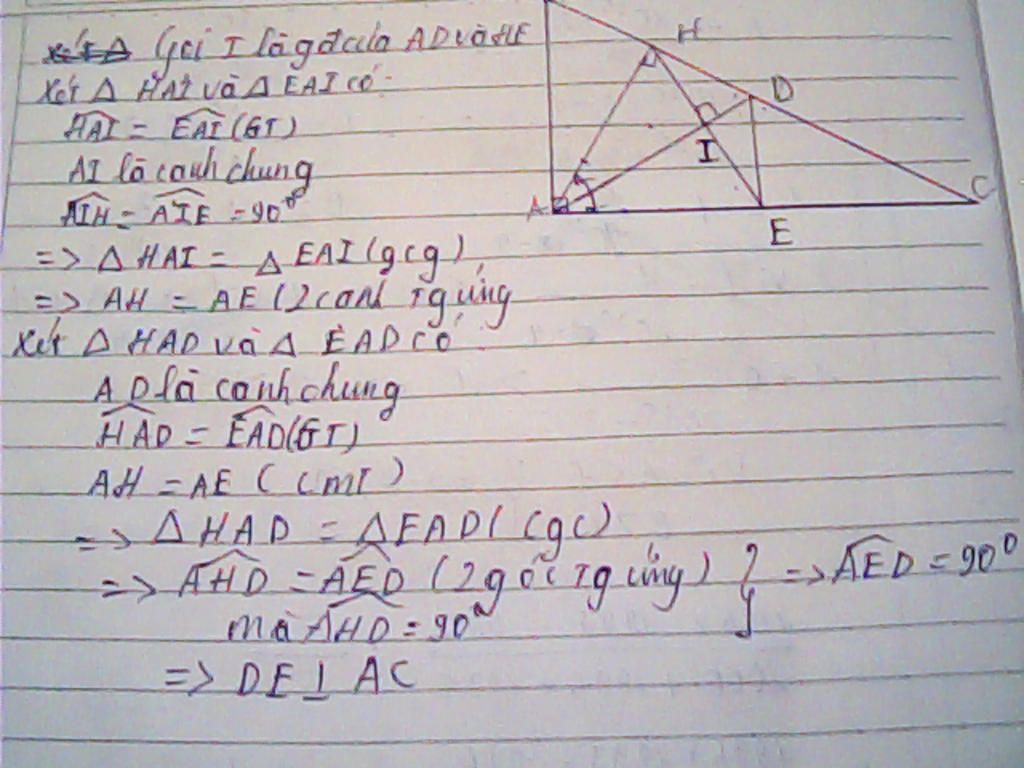 Gọi I là gđ của AD và HE
Xét Δ HAI và Δ EAI có
HAI = EAI (GT)
AI là cạnh chung
AIH = AIE = 90°
=> Δ HAI = Δ EAI (gcg)
=> AH = AE (2 cạnh tg ứng
Xét Δ HAD và Δ EAD có
AD là cạnh chung
HAD = EAD (GT)
AH = AE (cmt)
=> Δ HAD = Δ EAD (cgc)
=> AHD = AED (2 góc tg ứng) } => AED = 90°
mà AHD = 90°
=> DE ⊥ AC
H
D
I
A
C
E